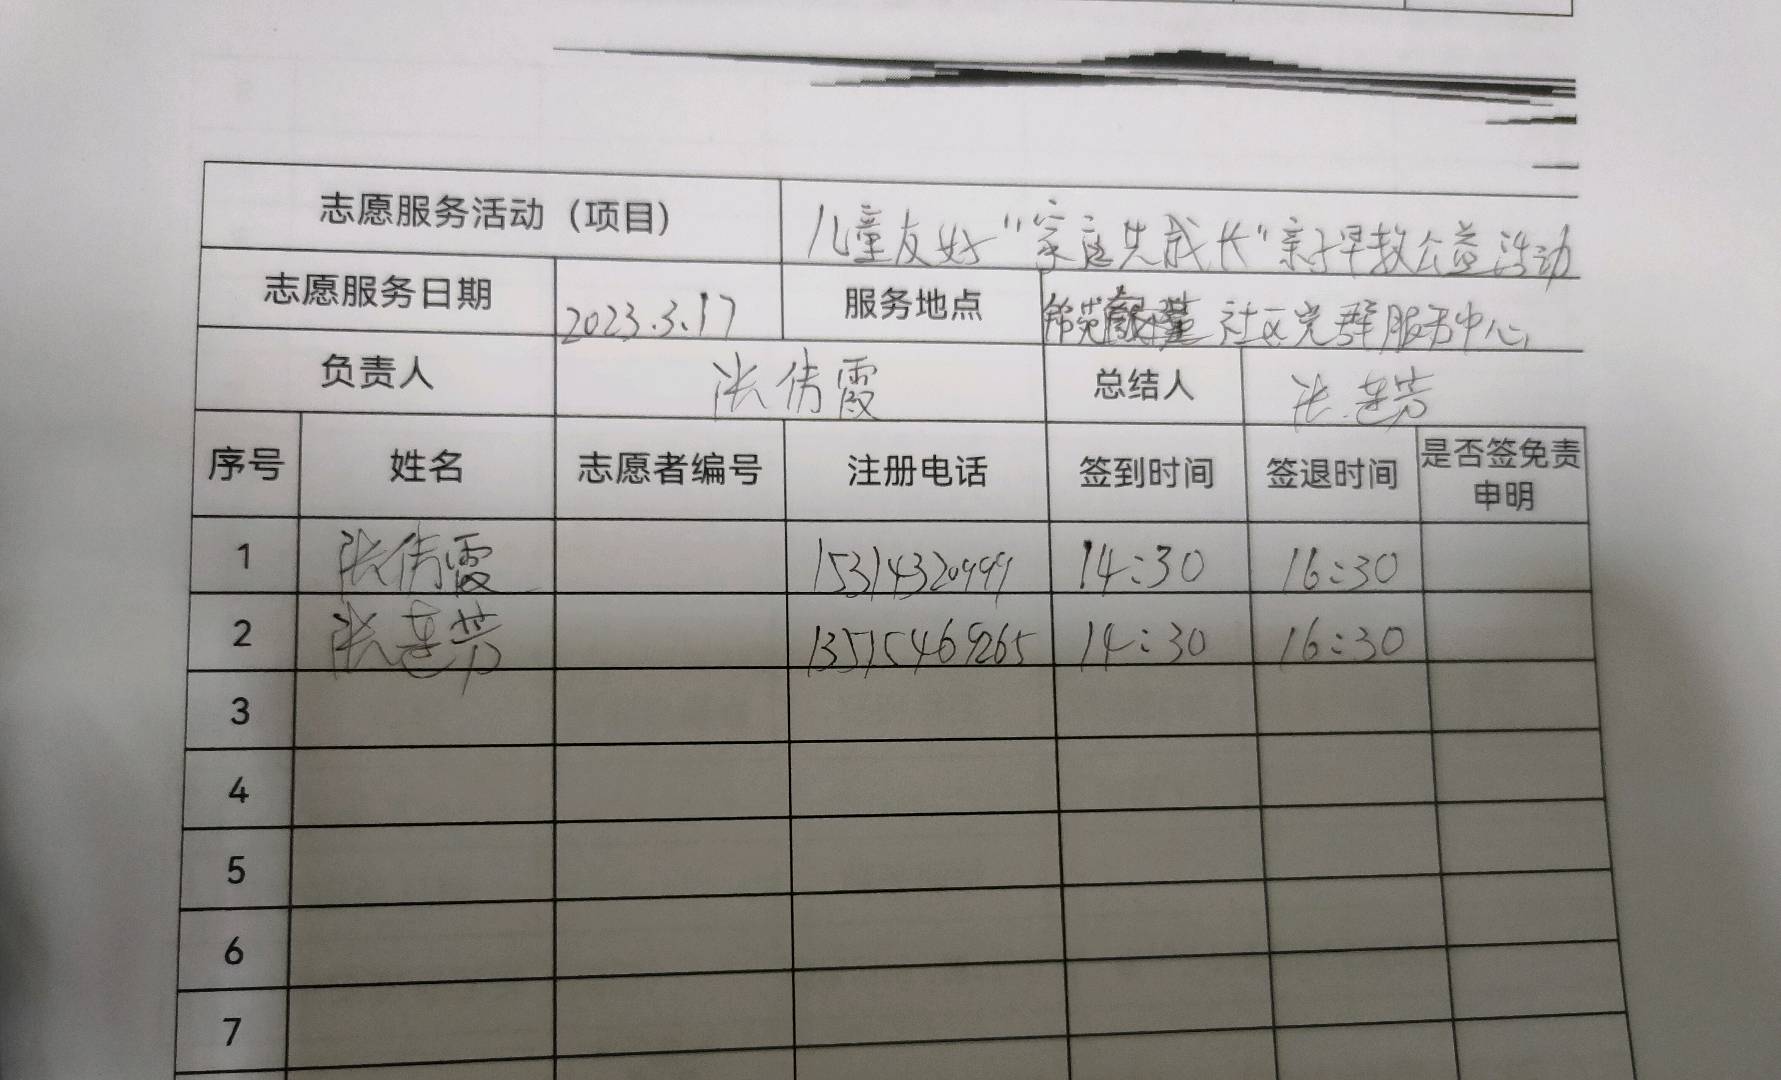 志愿服务活动（项目） 儿童友好“家庭共成长”亲子早教公益活动
志愿服务日期 2023.3.17 服务地点 锦苑 社区党群服务中心
负责人 张倩霞 总结人 张莲芳
序号 姓名 志愿者编号 注册电话 签到时间 签退时间 是否签免责申明
1 张倩霞 15314320999 14:30 16:30
2 张莲芳 13515469265 14:30 16:30
3
4
5
6
7